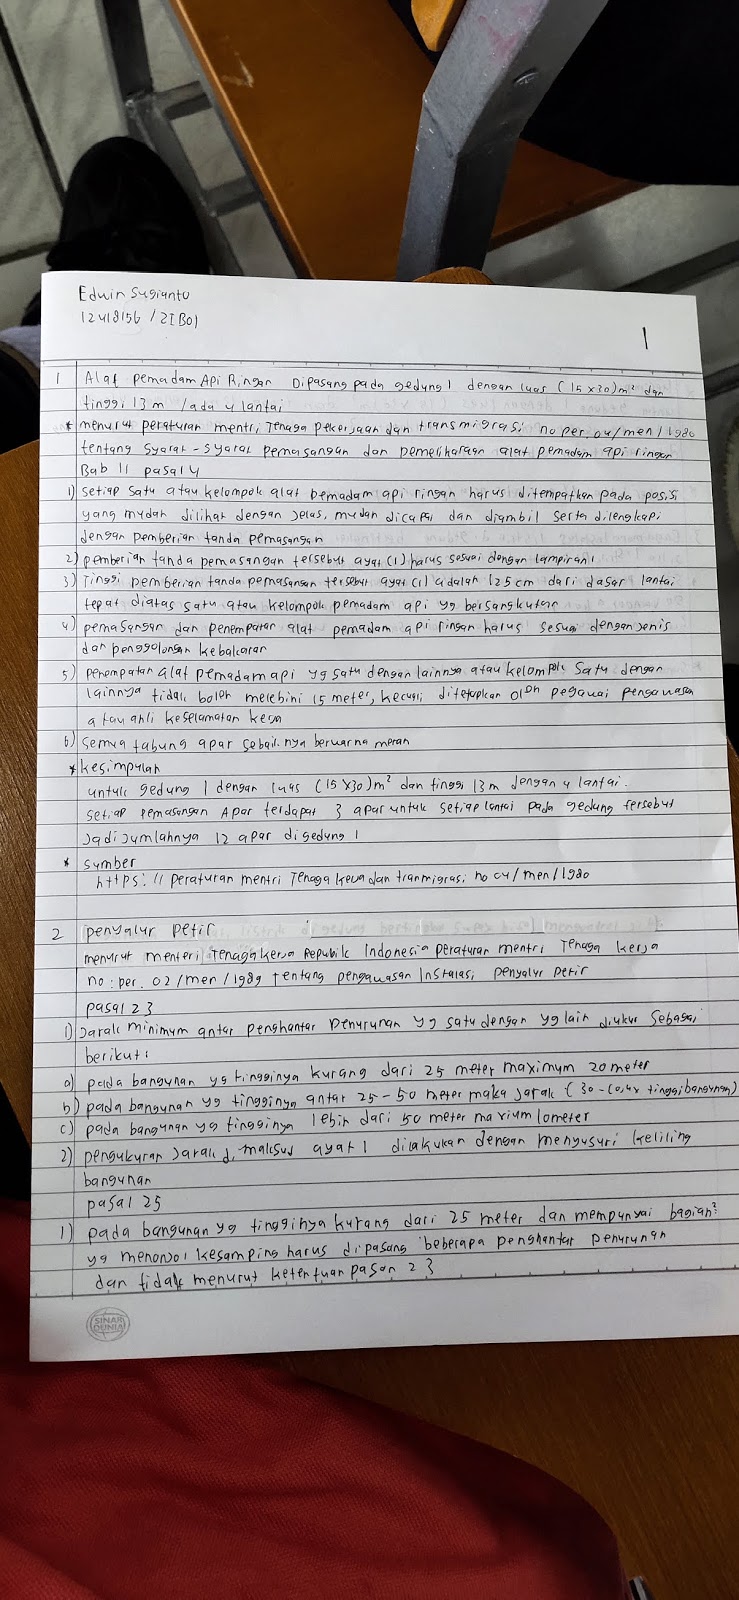 Edwin Sugianto
12418156 / 2IB01
1
1 Alat pemadam Api Ringan Dipasang pada gedung 1 dengan luas (15x30)m² dan
tinggi 13 m /ada 4 lantai
* menurut peraturan mentri Tenaga pekerjaan dan transmigrasi no per.04/men/1980
tentang syarat-syarat pemasangan dan pemeliharaan alat pemadam api ringan
Bab II pasal 4
1) setiap satu atau kelompok alat pemadam api ringan harus ditempatkan pada posisi
yang mudah dilihat dengan jelas, mudah dicapai dan diambil serta dilengkapi
dengan pemberian tanda pemasangan
2) pemberian tanda pemasangan tersebut ayat (1) harus sesuai dengan lampiran 1
3) Tinggi pemberian tanda pemasangan tersebut ayat (1) adalah 125 cm dari dasar lantai
tepat diatas satu atau kelompok pemadam api yg bersangkutan
4) pemasangan dan penempatan alat pemadam api ringan harus sesuai dengan jenis
dan penggolongan kebakaran
5) penempatan alat pemadam api yg satu dengan lainnya atau kelompok satu dengan
lainnya tidak boleh melebihi 15 meter, kecuali ditetapkan oleh pegawai pengawasan
atau ahli keselamatan kerja
6) semua tabung apar sebaiknya berwarna merah
* kesimpulan
untuk gedung 1 dengan luas (15x30)m² dan tinggi 13m dengan 4 lantai.
setiap pemasangan Apar terdapat 3 apar untuk setiap lantai pada gedung tersebut
Jadi jumlahnya 12 apar di gedung 1
* sumber
https://peraturan mentri Tenaga kerja dan tranmigrasi no 04/men/1980
2 penyalur petir
menurut menteri Tenaga kerja Republik Indonesia peraturan mentri Tenaga kerja
no: per. 02/men/1989 tentang pengawasan Instalasi penyalur petir
pasal 23
1) Jarak minimum antar penghantar penurunan yg satu dengan yg lain diukur sebagai
berikut:
a) pada bangunan yg tingginya kurang dari 25 meter maximum 20 meter
b) pada bangunan yg tingginya antar 25-50 meter maka jarak (30-(0,4x tinggi bangunan)
c) pada bangunan yg tingginya lebih dari 50 meter maxium 10meter
2) pengukuran jarak di maksud ayat 1 dilakukan dengan menyusuri keliling
bangunan
pasal 25
1) pada bangunan yg tingginya kurang dari 25 meter dan mempunyai bagian²
yg menonjol kesamping harus dipasang beberapa penghantar penurunan
dan tidak menurut ketentuan pasan 23
SINAR
DUNIA